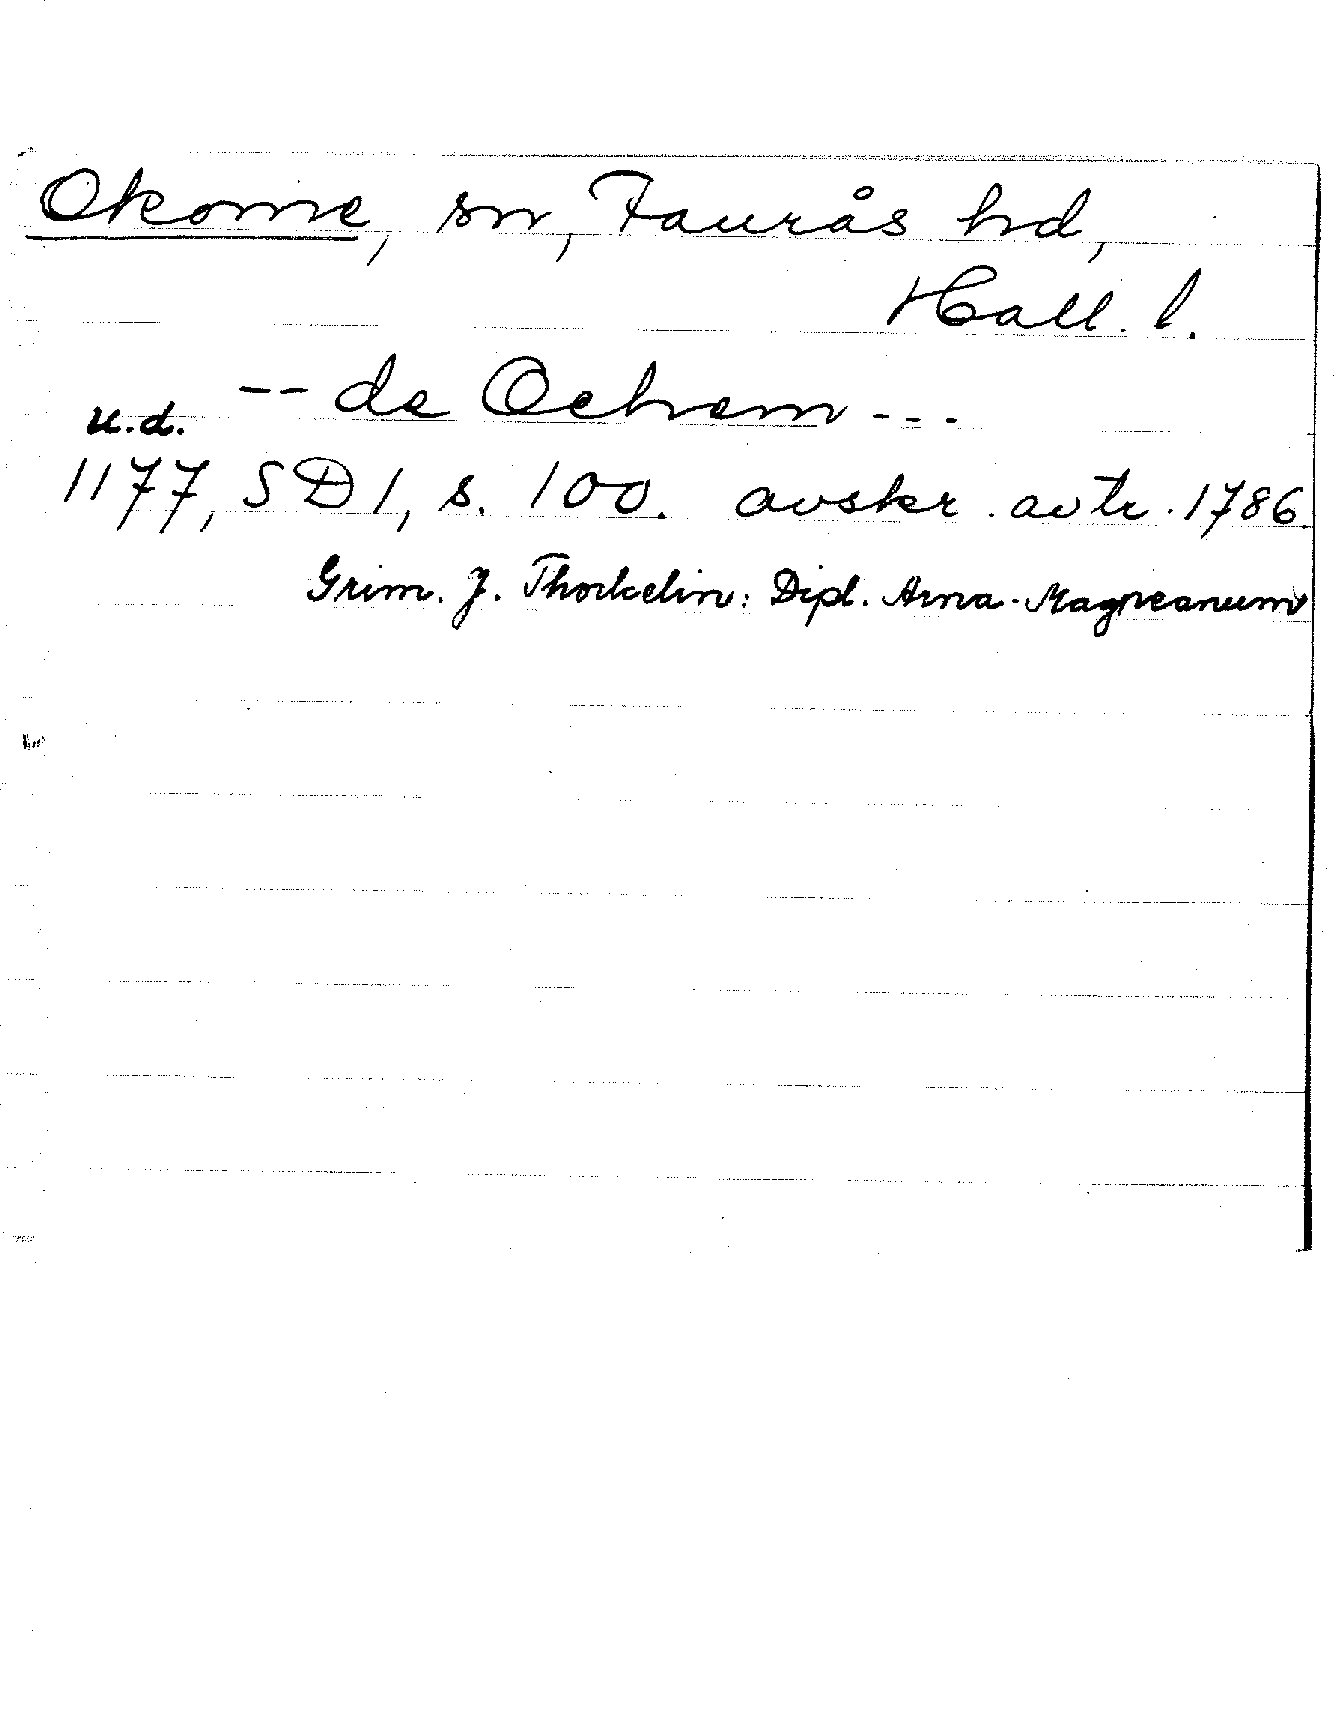 Okome, sn, Faurås hd,
Hall. l.
-- de Ochem ---
u.d.
1177, SD 1, s. 100. avskr. avtr. 1786
Grim. J. Thorkelin: Dipl. Arna-Magneanum